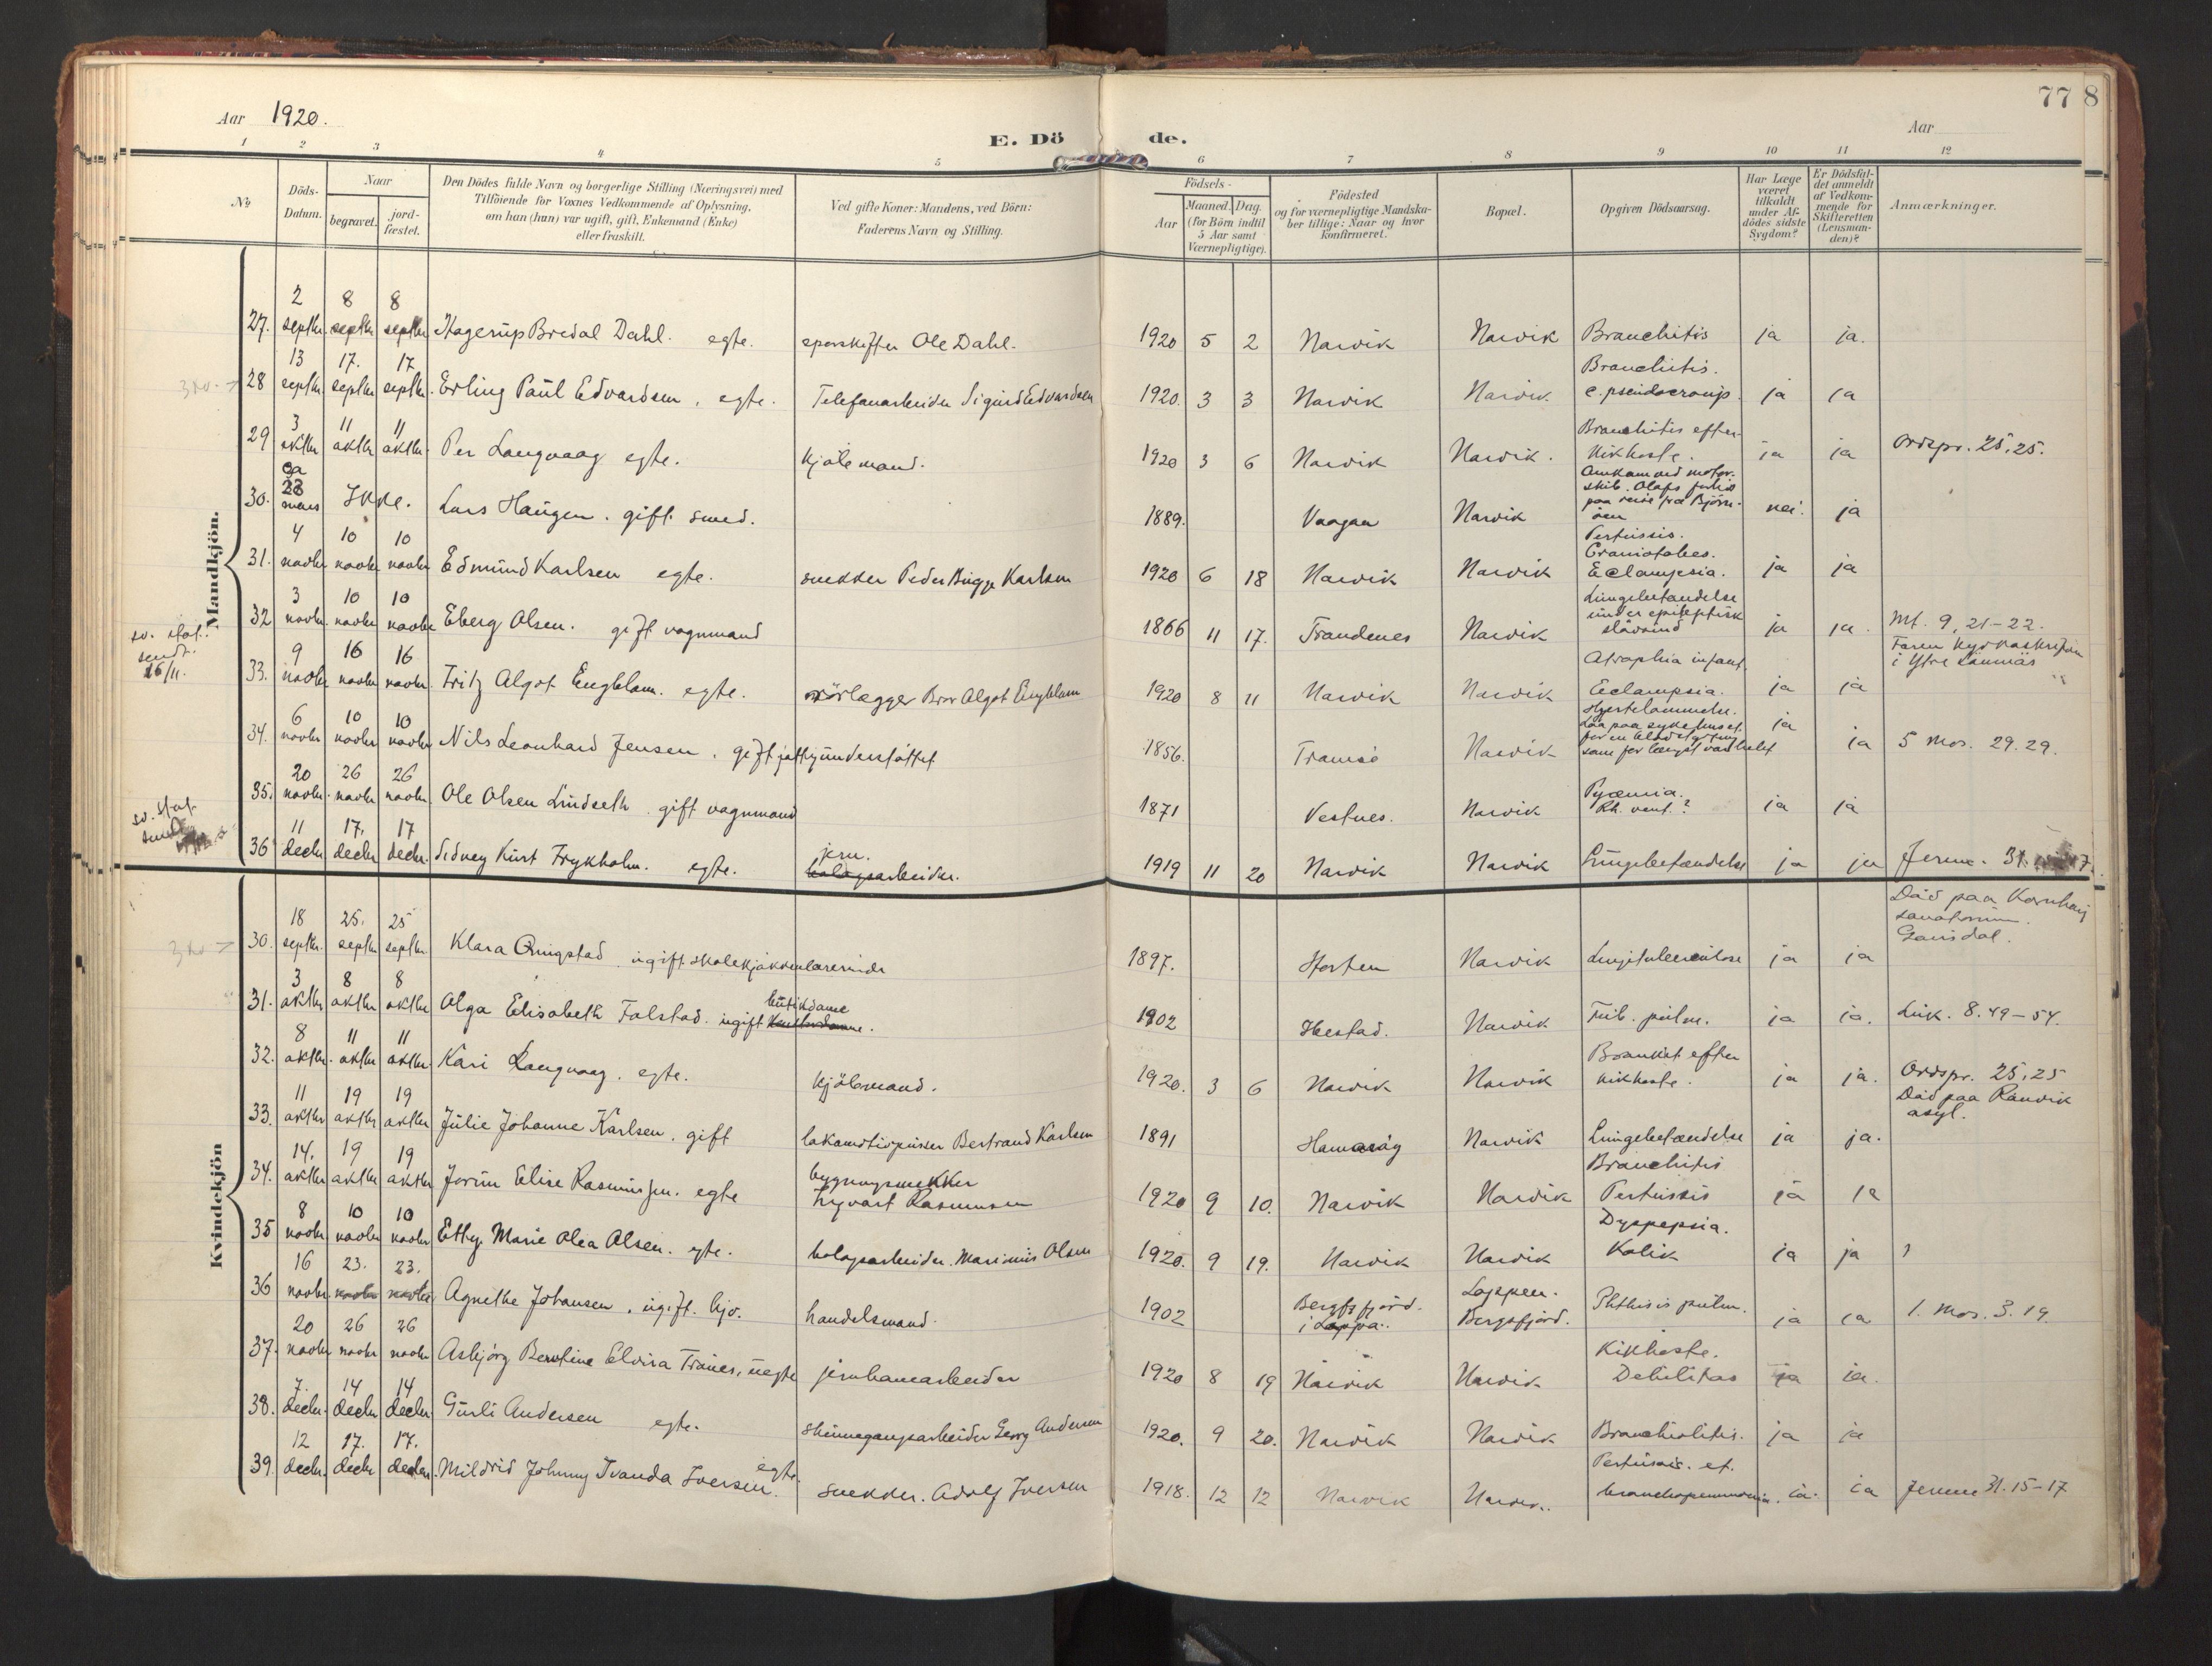 Aar 1920.
E. Dö de.
Aar
77 8
1 2 3 4 5 6 7 8 9 10 11 12
No
Döds-Datum.
Naar
begravet.
jord-fæstet.
Den Dödes fulde Navn og borgerlige Stilling (Næringsvei) med
Tilföiende for Voxnes Vedkommende af Oplysning,
om han (hun) var ugift, gift, Enkemand (Enke)
eller fraskilt.
Ved gifte Koner: Mandens, ved Börn:
Faderens Navn og Stilling.
Födsels-
Aar
Maaned. Dag.
(for Börn indtil
5 Aar samt
Værnepligtige).
Födested
og for værnepligtige Mandska-
ber tillige: Naar og hvor
Konfirmeret.
Bopæl.
Opgiven Dödsaarsag.
Har Læge
været
tilkaldt
under Af-
dödes sidste
Sygdom?
Er Dödsfal-
det anmeldt
af Vedkom-
mende for
Skifteretten
(Lensman-
den)?
Anmærkninger.
Mandkjön.
27. 2 septbr. 8 septbr 8 septbr Hagerup Bredal Dahl. egte. sporskifter Ole Dahl. 1920 5 2 Narvik Narvik Bronchitis ja ja.
28 13 septbr. 17. septbr 17 septbr. Erling Paul Edvardsen, egte. Telefonarbeider Sigurd Edvardsen 1920. 3 3 Narvik Narvik. Bronchitis. c. pseudocroup. ja ja
29 3 oktbr 11 oktbr 11 oktbr. Per Langvaag egte. Kjölemand. 1920 3 6 Narvik Narvik. Bronchitis efter Kikhoste. ja ja Ordspr. 25,25.
30. ca 28 mars Ikke. Lars Haugen. gift smed. 1889. Vaagan Narvik Omkom med motor-
skib. Olafs forlis
paa reise fra Björn-
öen nei. ja
31. 4 novbr 10 novbr 10 novbr Edmund Karlsen egte. snekker Peder Brigge Karlsen 1920 6 18 Narvik Narvik Pertussis.
Craniotabes.
Eclampsia. ja ja
32 3 novbr. 10 novbr 10 novbr Eberg Olsen. gift vognmand 1866 11 17. Trondenes Narvik Lungebetændelse
under epileptisk
slövsind ja ja. Mt. 9, 21-22.
sv. stat.
sendt.
16/11.
33. 9 novbr 16 novbr 16 novbr. Fritz Algot Engblom. egte. rörlægger Bror Algot Engblom 1920 8 11 Narvik Narvik Atrophia infant.
Eclampsia. ja ja Faren kyrkoskrifven
i Ytre Lännäs
34. 6 novbr 10 novbr 10 novbr Nils Leonhard Jensen. gift fattigunderstöttet 1856. Tromsö Narvik Hjertelammelse.
Laa paa sykehuset
for en
som for længst var helet ja ja 5 Mos. 29.29.
35. 20 novbr. 26 novbr 26 novbr. Ole Olsen Lindseth. gift vognmand 1871 Vestnes. Narvik Pyæmia.
Rh. vent.? ja ja
sv. stat.
36 11 decbr 17. decbr 17 decbr. Sidney Kurt Frykholm. egte. jern.
bolagsarbeider. 1919 11 20 Narvik Narvik Lungebetændelse ja ja Jerem. 31.
Kvindekjön
30. 18 septbr. 25. septbr 25 septbr. Klara Ringstad ugift skolekjökkenlærerinde 1897. Horten Narvik Lungetuberculose ja ja Död paa Kornhaug
sanatorium.
Gausdal.
31. 3 oktbr 8 oktbr 8 oktbr Olga Elisabeth Falstad. ugift butikdame 1902 Ibestad. Narvik Tub. pulm. ja ja. Luk. 8.49-54.
32. 8 oktbr. 11 oktbr 11 oktbr Kari Langvaag. egte. Kjölemand. 1920. 3 6 Narvik Narvik Bronkit efter
kikhoste. ja ja. Ordspr. 25,25
33. 11 oktbr 19 oktbr 19 oktbr Julie Johanne Karlsen, gift lokomotivpusser Bertrand Karlsen 1891 Hamaröy Narvik Lungebetændelse ja ja. Död paa Ranvik
asyl.
34. 14. oktbr 19 oktbr 19 oktbr Jorun Elise Rasmussen. egte bygningssnekker
Trygvart Rasmussen 1920 9 10. Narvik Narvik Bronchitis
Pertussis ja ja
35 8 novbr 10 novbr 10 novbr Etty Marie Olea Olsen. egte. bolagsarbeider. Marinius Olsen 1920. 9 19. Narvik Narvik Dyspepsia.
Kolik ja ja
36 16 novbr. 23. novbr 23. novbr. Agnethe Johansen, ugift. hjv. handelsmand. 1902 Bergsfjord.
i Loppa. Loppen.
Bergsfjord. Phthisis pulm. ja ja 1. Mos. 3.19
37. 20 novbr 26 novbr 26 novbr Asbjörg Berntine Elvira Tranes, uegte jernbanearbeider 1920 8 19 Narvik Narvik Kikhoste.
Debilitas ja ja.
38. 7. decbr. 14 decbr 14 decbr. Gurli Andersen egte. skinnegangsarbeider Georg Andersen 1920. 9 20. Narvik Narvik Bronchiolitis. ja ja
39. 12 decbr. 17. decbr 17. decbr. Mildrid Johnny Ivanda Iversen. egte. snekker. Adolf Iversen 1918. 12 12 Narvik Narvik. Pertussis. et.
bronchopneumonia. ja. ja Jerem 31.15-17